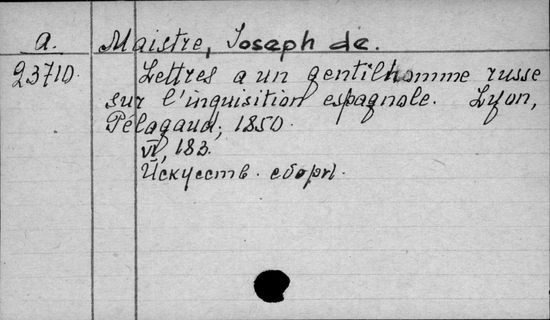 a. Maistre, Joseph de.
23710. Lettres a un gentilhomme russe
sur l'inquisition espagnole. Lyon,
Pélagaud, 1850.
VI, 183.
Искусств. сборн.